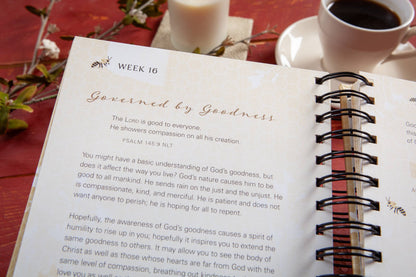 WEEK 16
Governed by Goodness
The LORD is good to everyone.
He showers compassion on all his creation.
PSALM 145:9 NLT
You might have a basic understanding of God's goodness, but
does it affect the way you live? God's nature causes him to be
good to all mankind. He sends rain on the just and the unjust. He
is compassionate, kind, and merciful. He is patient and does not
want anyone to perish; he is hoping for all to repent.
Hopefully, the awareness of God's goodness causes a spirit of
humility to rise up in you; hopefully it inspires you to extend the
same goodness to others. It may allow you to see the body of
Christ as well as those whose hearts are far from God with the
same level of compassion, breathing out
love you